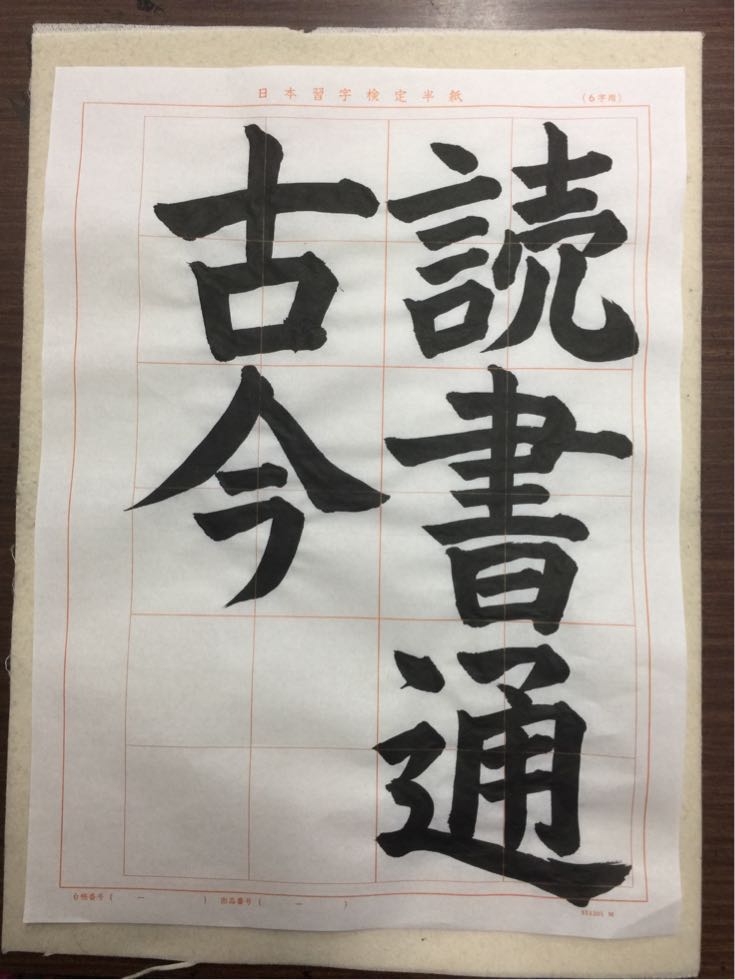 日本習字検定半紙
(6字用)
読書通
古今
台帳番号( ー )
出品番号( ー )